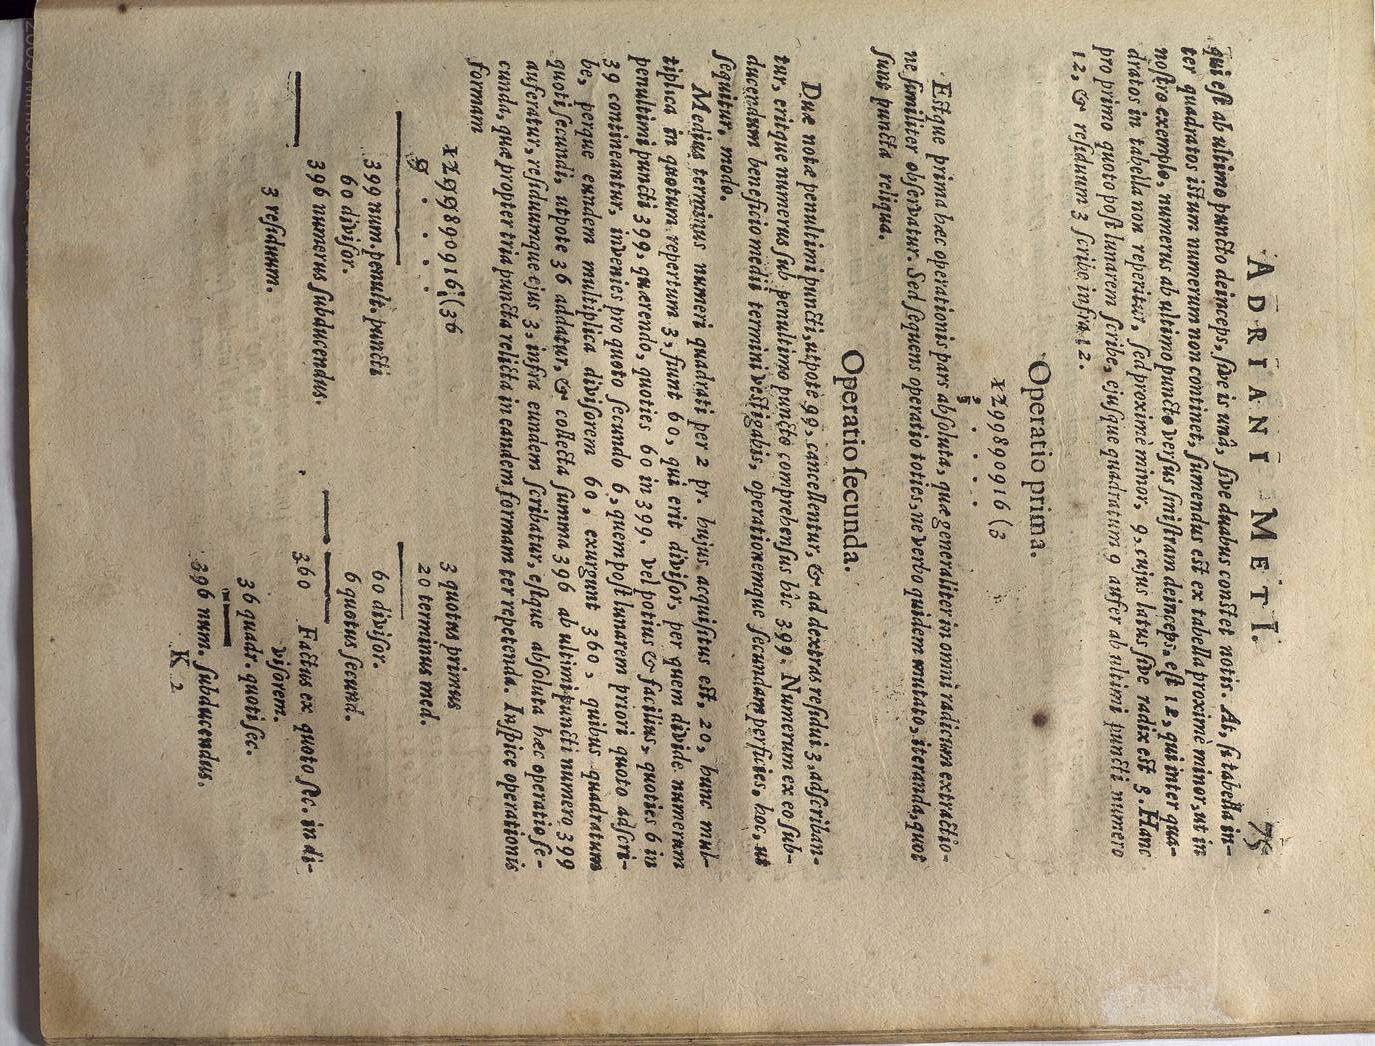 ADRIANI METI. 75
qui eſt ab ultimo puncto deinceps, ſive is unâ, ſive duabus conſtet notis. At, ſi tabella in-
ter quadratos iſtum numerum non continet, ſumendus eſt ex tabella proximè minor, ut in
noſtro exemplo, numerus ab ultimo puncto verſus ſiniſtram deinceps, eſt 12, qui inter qua-
dratos in tabella non reperitur, ſed proximè minor, 9, cujus latus ſive radix eſt 3. Hanc
pro primo quoto poſt lunarem ſcribe, ejuſque quadratum 9 aufer ab ultimi puncti numero
12, & reſiduum 3 ſcribe infra 12.
Operatio prima.
1299890916 (3
3 . . . .
Eſtque prima hæc operationis pars abſoluta, quæ generaliter in omni radicum extractio-
ne ſimiliter obſervatur. Sed ſequens operatio toties, ne verbo quidem mutato, iteranda, quot
ſunt puncta reliqua.
Operatio ſecunda.
Duæ notæ penultimi puncti, utpote 99, cancellentur, & ad dextras reſidui 3, adſcriban-
tur, eritque numerus ſub penultimo puncto comprehenſus hîc 399. Numerum ex eo ſub-
ducendum beneficio medii termini veſtigabis, operationemque ſecundam perficies, hoc, ut
ſequitur, modo.
Medius terminus numeri quadrati per 2 pr. hujus acquiſitus eſt, 20, hunc mul-
tiplica in quotum repertum 3, fiunt 60, qui erit diviſor, per quem divide numerum
penultimi puncti 399, quærendo, quoties 60 in 399. vel potius & facilius, quoties 6 in
39 contineantur, invenies pro quoto ſecundo 6, quem poſt lunarem priori quoto adſcri-
be, perque eundem multiplica diviſorem 60, exurgunt 360, quibus quadratum
quoti ſecundi, utpote 36 addatur, & collecta ſumma 396 ab ultimi puncti numero 399
auferatur, reſiduumque ejus 3, infra eundem ſcribatur, eſtque abſoluta hæc operatio ſe-
cunda, quæ propter tria puncta relicta in eandem formam ter repetenda. Inſpice operationis
formam
1299890916 (36
. . . .
399 num. penult. puncti
60 diviſor.
396 numerus ſubducendus.
3 reſiduum.
3 quotus primus
20 terminus med.
60 diviſor.
6 quotus ſecund.
360 Factus ex quoto ſec. in di-
viſorem.
36 quadr. quoti ſec.
396 num. ſubducendus.
K 2